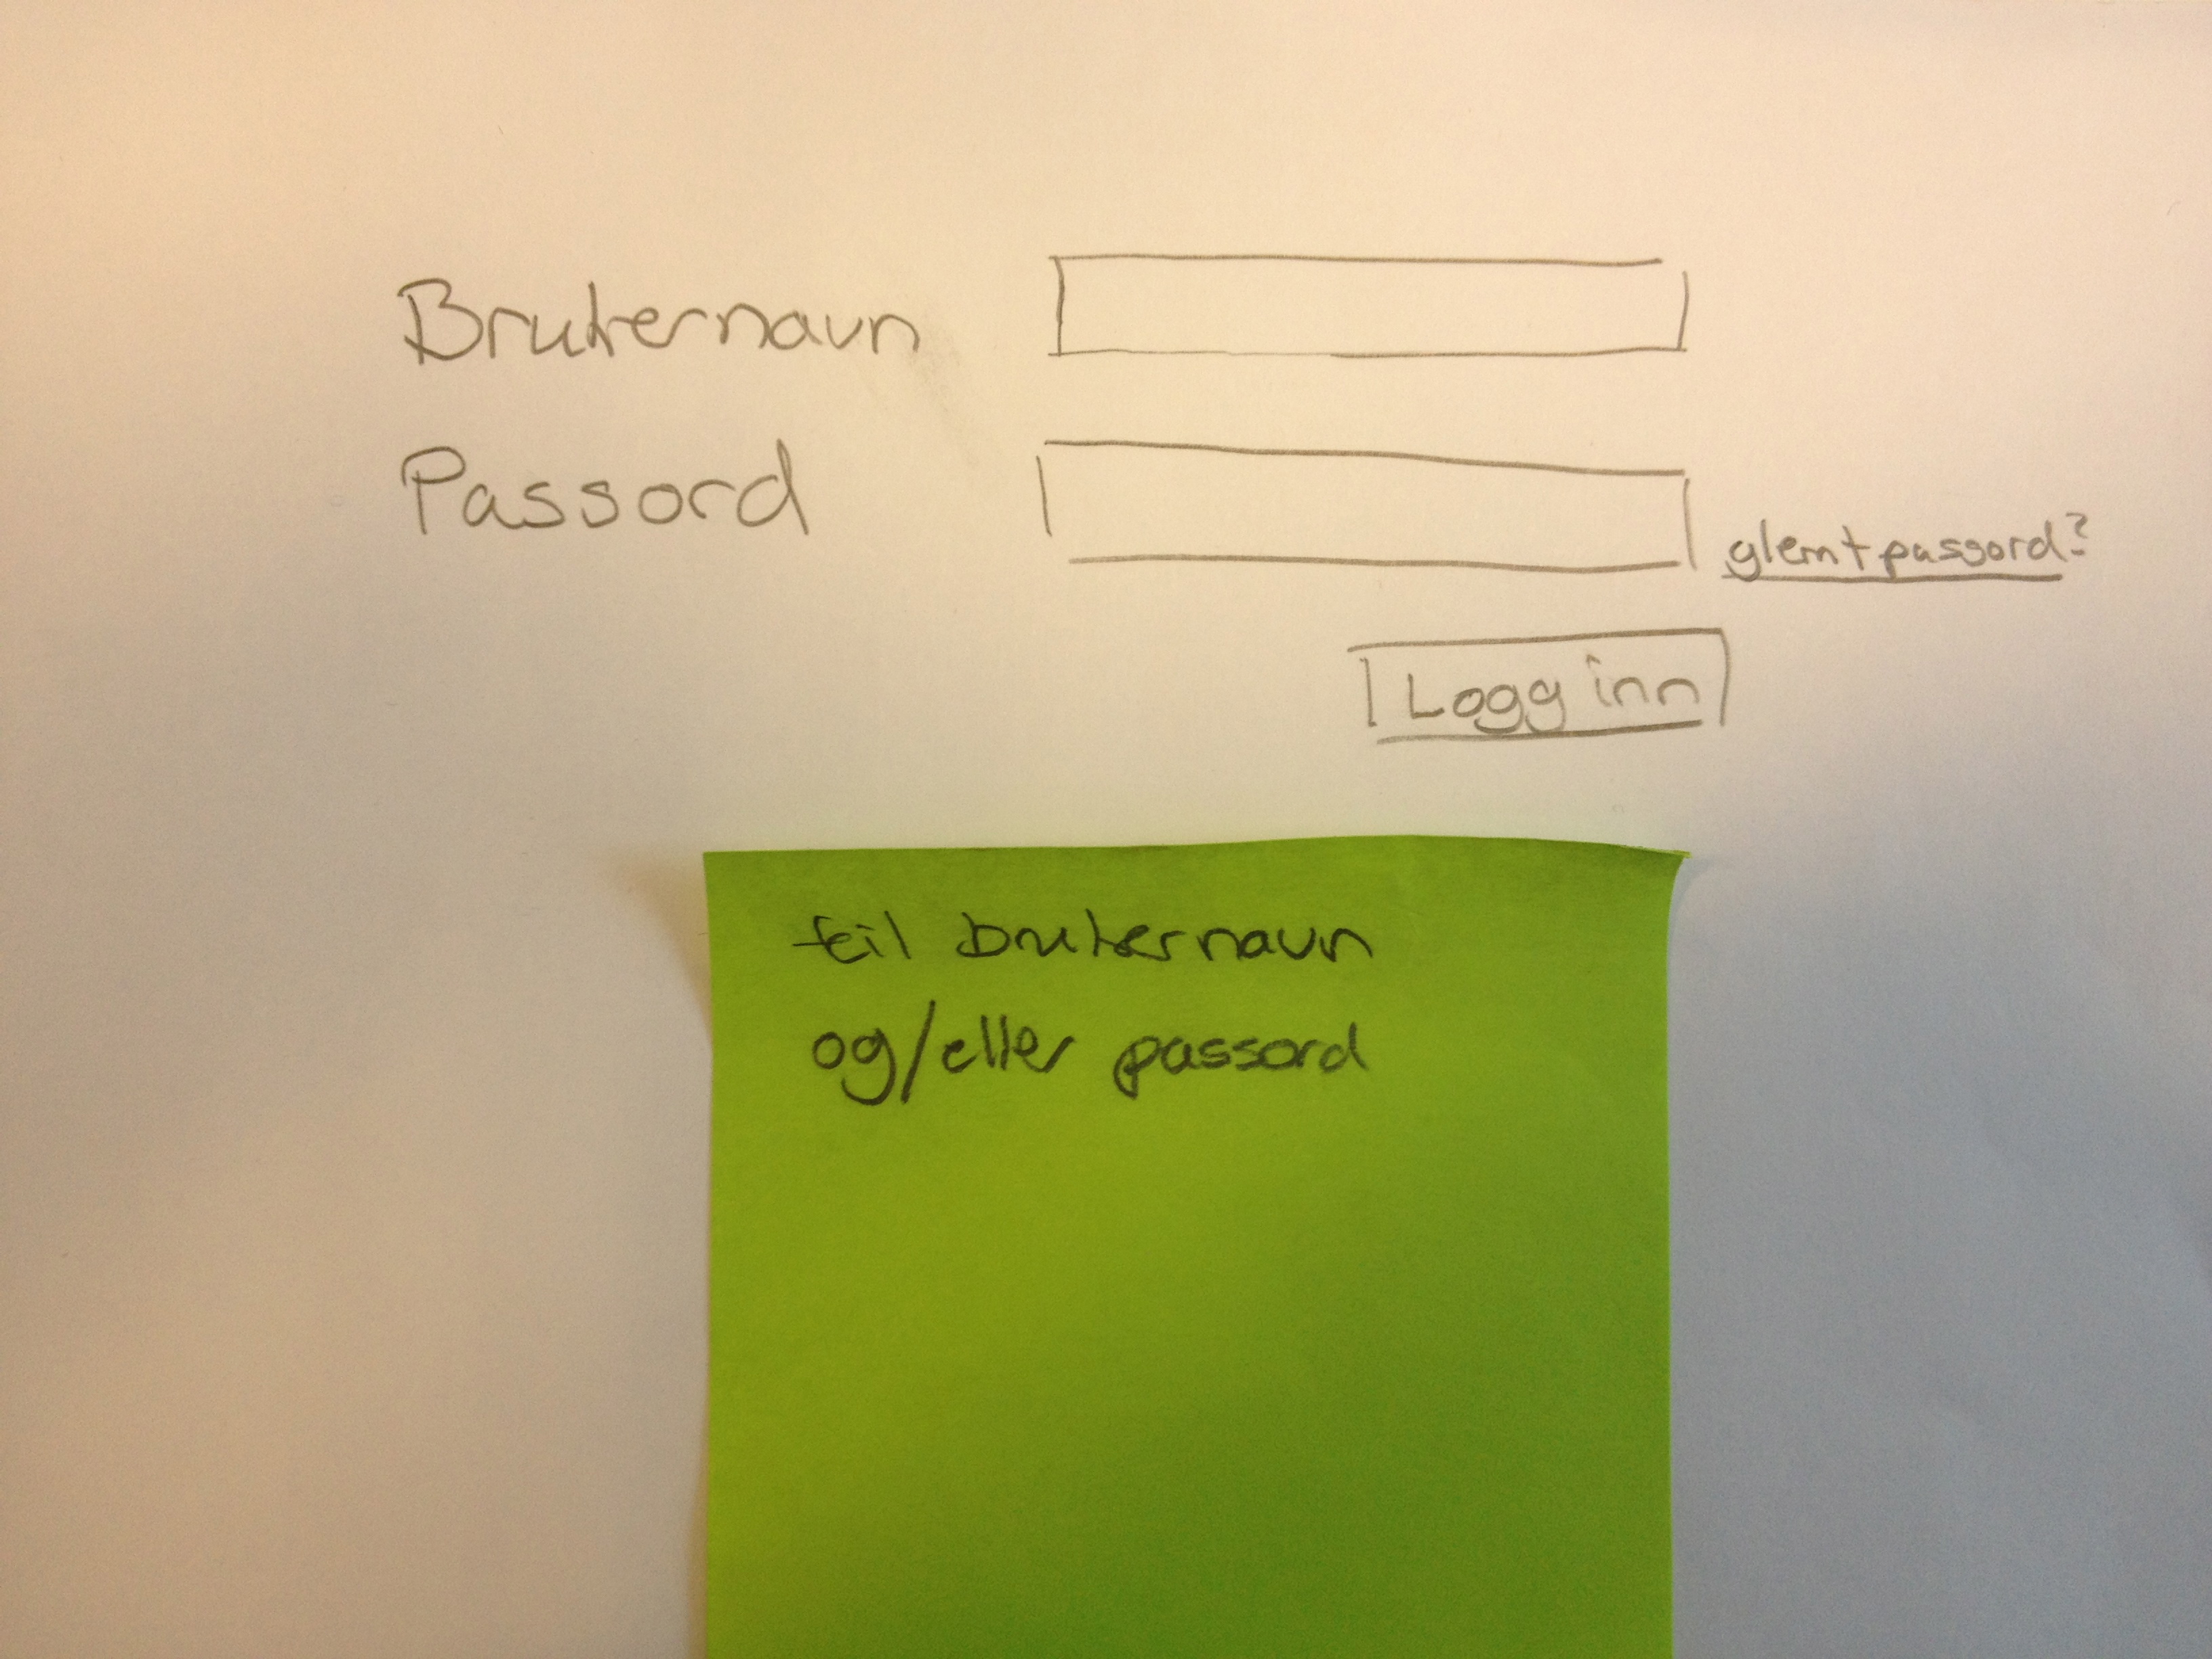 Brukernavn
Passord
glemt passord?
Logg inn
feil brukernavn
og/eller passord